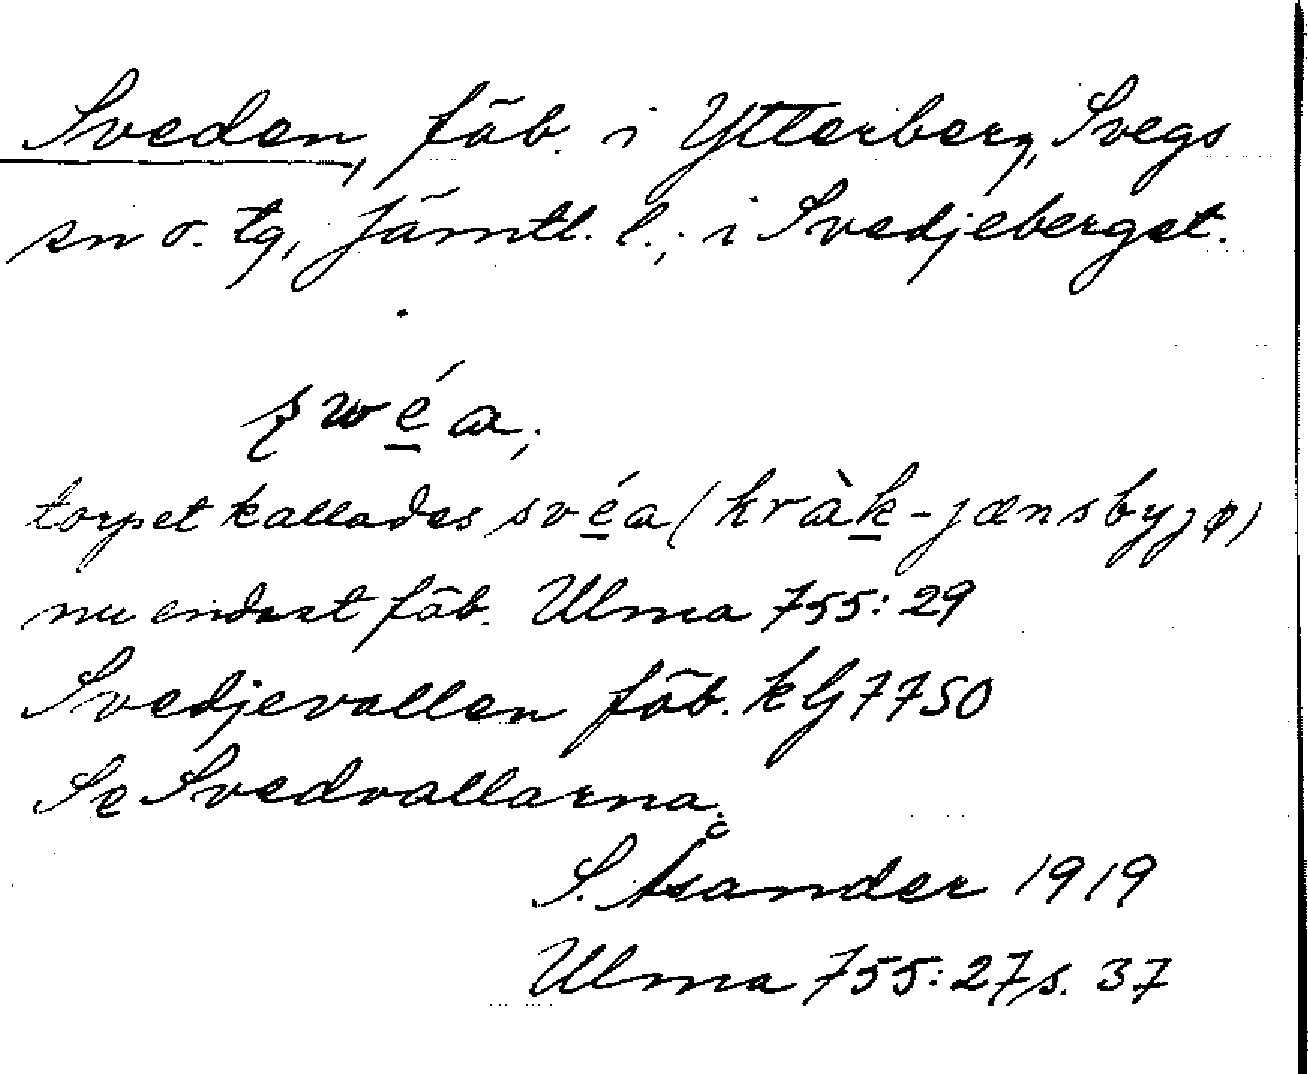 Sveden, fäb. i Ytterberg, Svegs
sn o. tg, Jämtl. l., i Svedjeberget.
swéa;
torpet kallades svéa (kràk-jænsbyjφ)
nu endast fäb. Ulma 755:29
Svedjevallen fäb. kG7750
Se Svedvallarna.
S. Åsander 1919
Ulma 755:27 s. 37